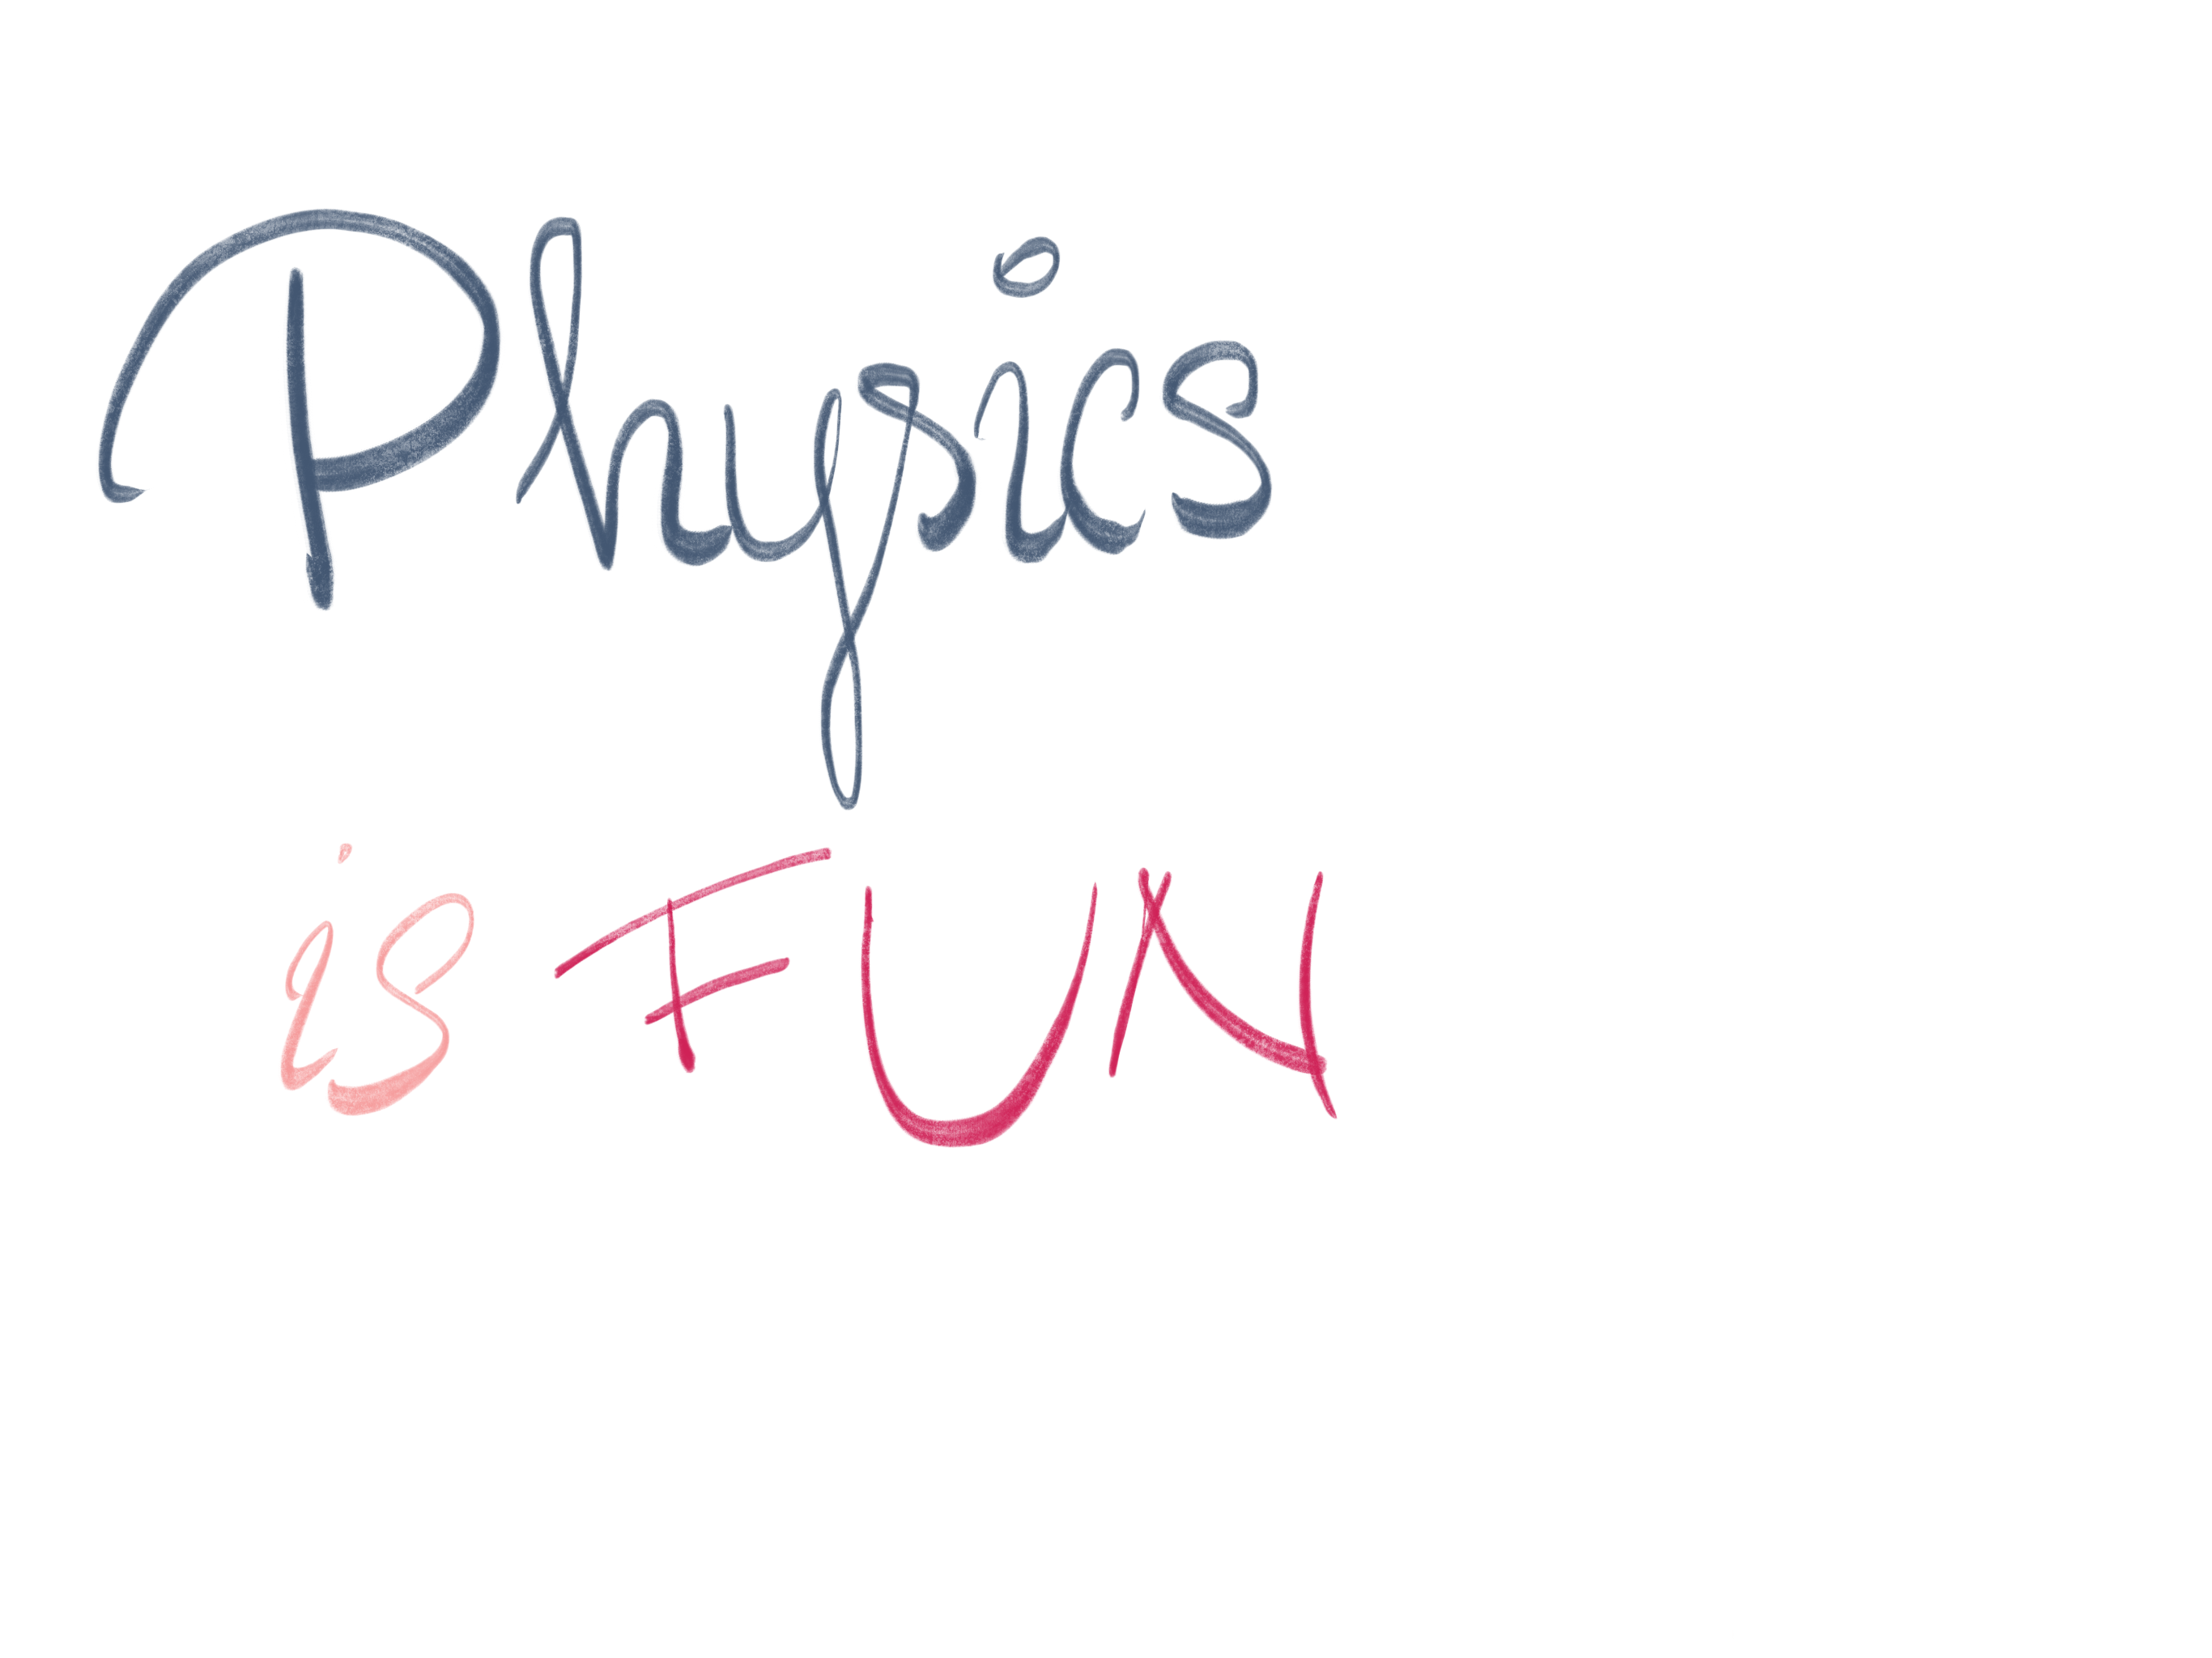 Physics
is FUN